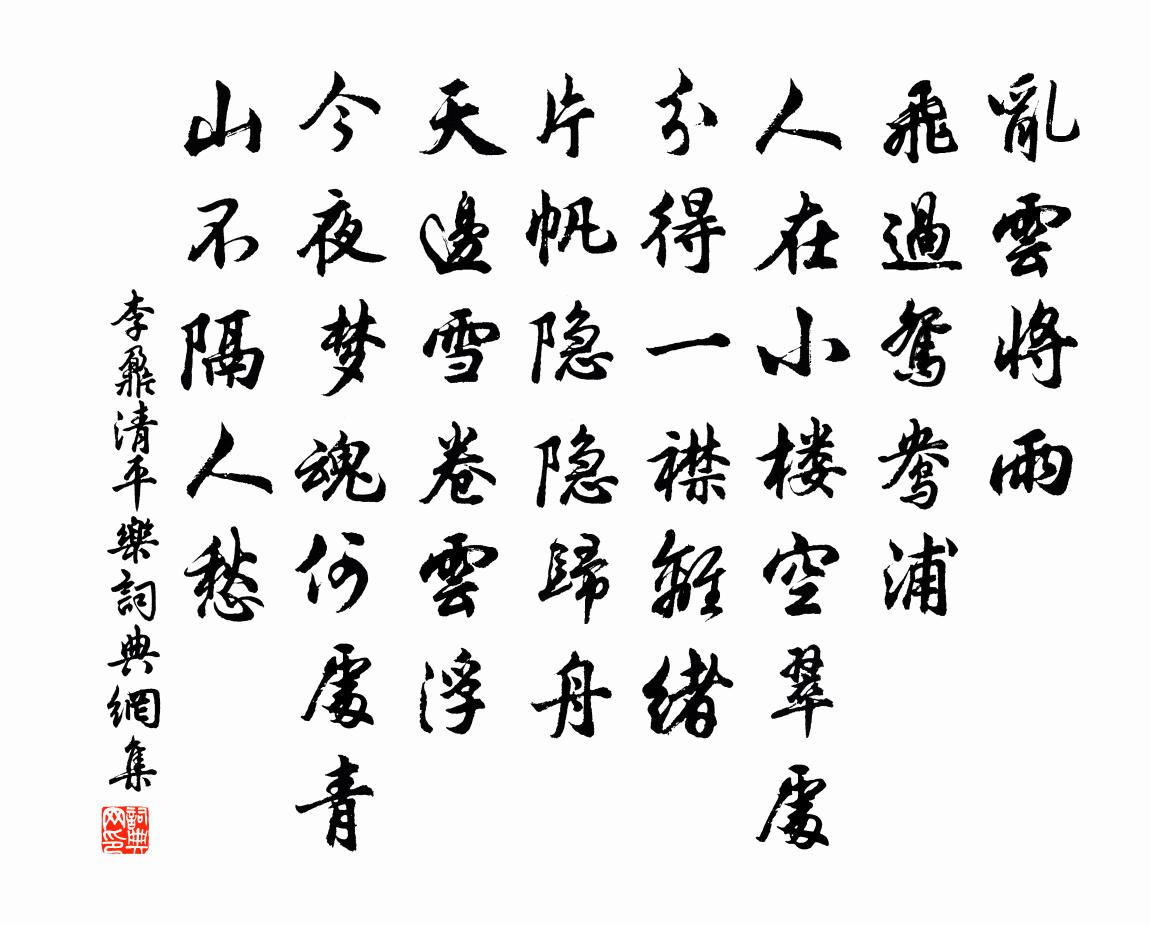 亂雲将雨
飛過鴛鴦浦
人在小楼空翠處
分得一襟離緒
片帆隐隐歸舟
天邊雪卷雲浮
今夜梦魂何處青
山不隔人愁
李鼐清平樂詞典網集
詞典
网印